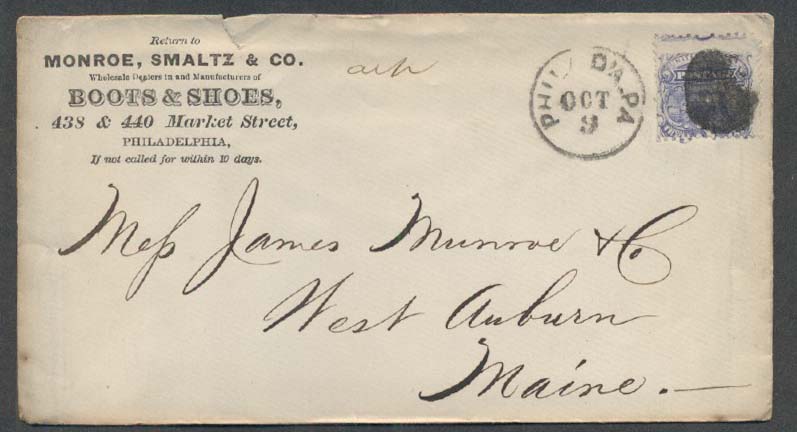 Return to
MONROE, SMALTZ & CO.
Wholesale Dealers in and Manufacturers of
BOOTS & SHOES,
438 & 440 Market Street,
PHILADELPHIA,
If not called for within 10 days.
PHIL D'A. PA
OCT
9
POSTAGE
Mess James Munroe & Co
West Auburn
Maine.